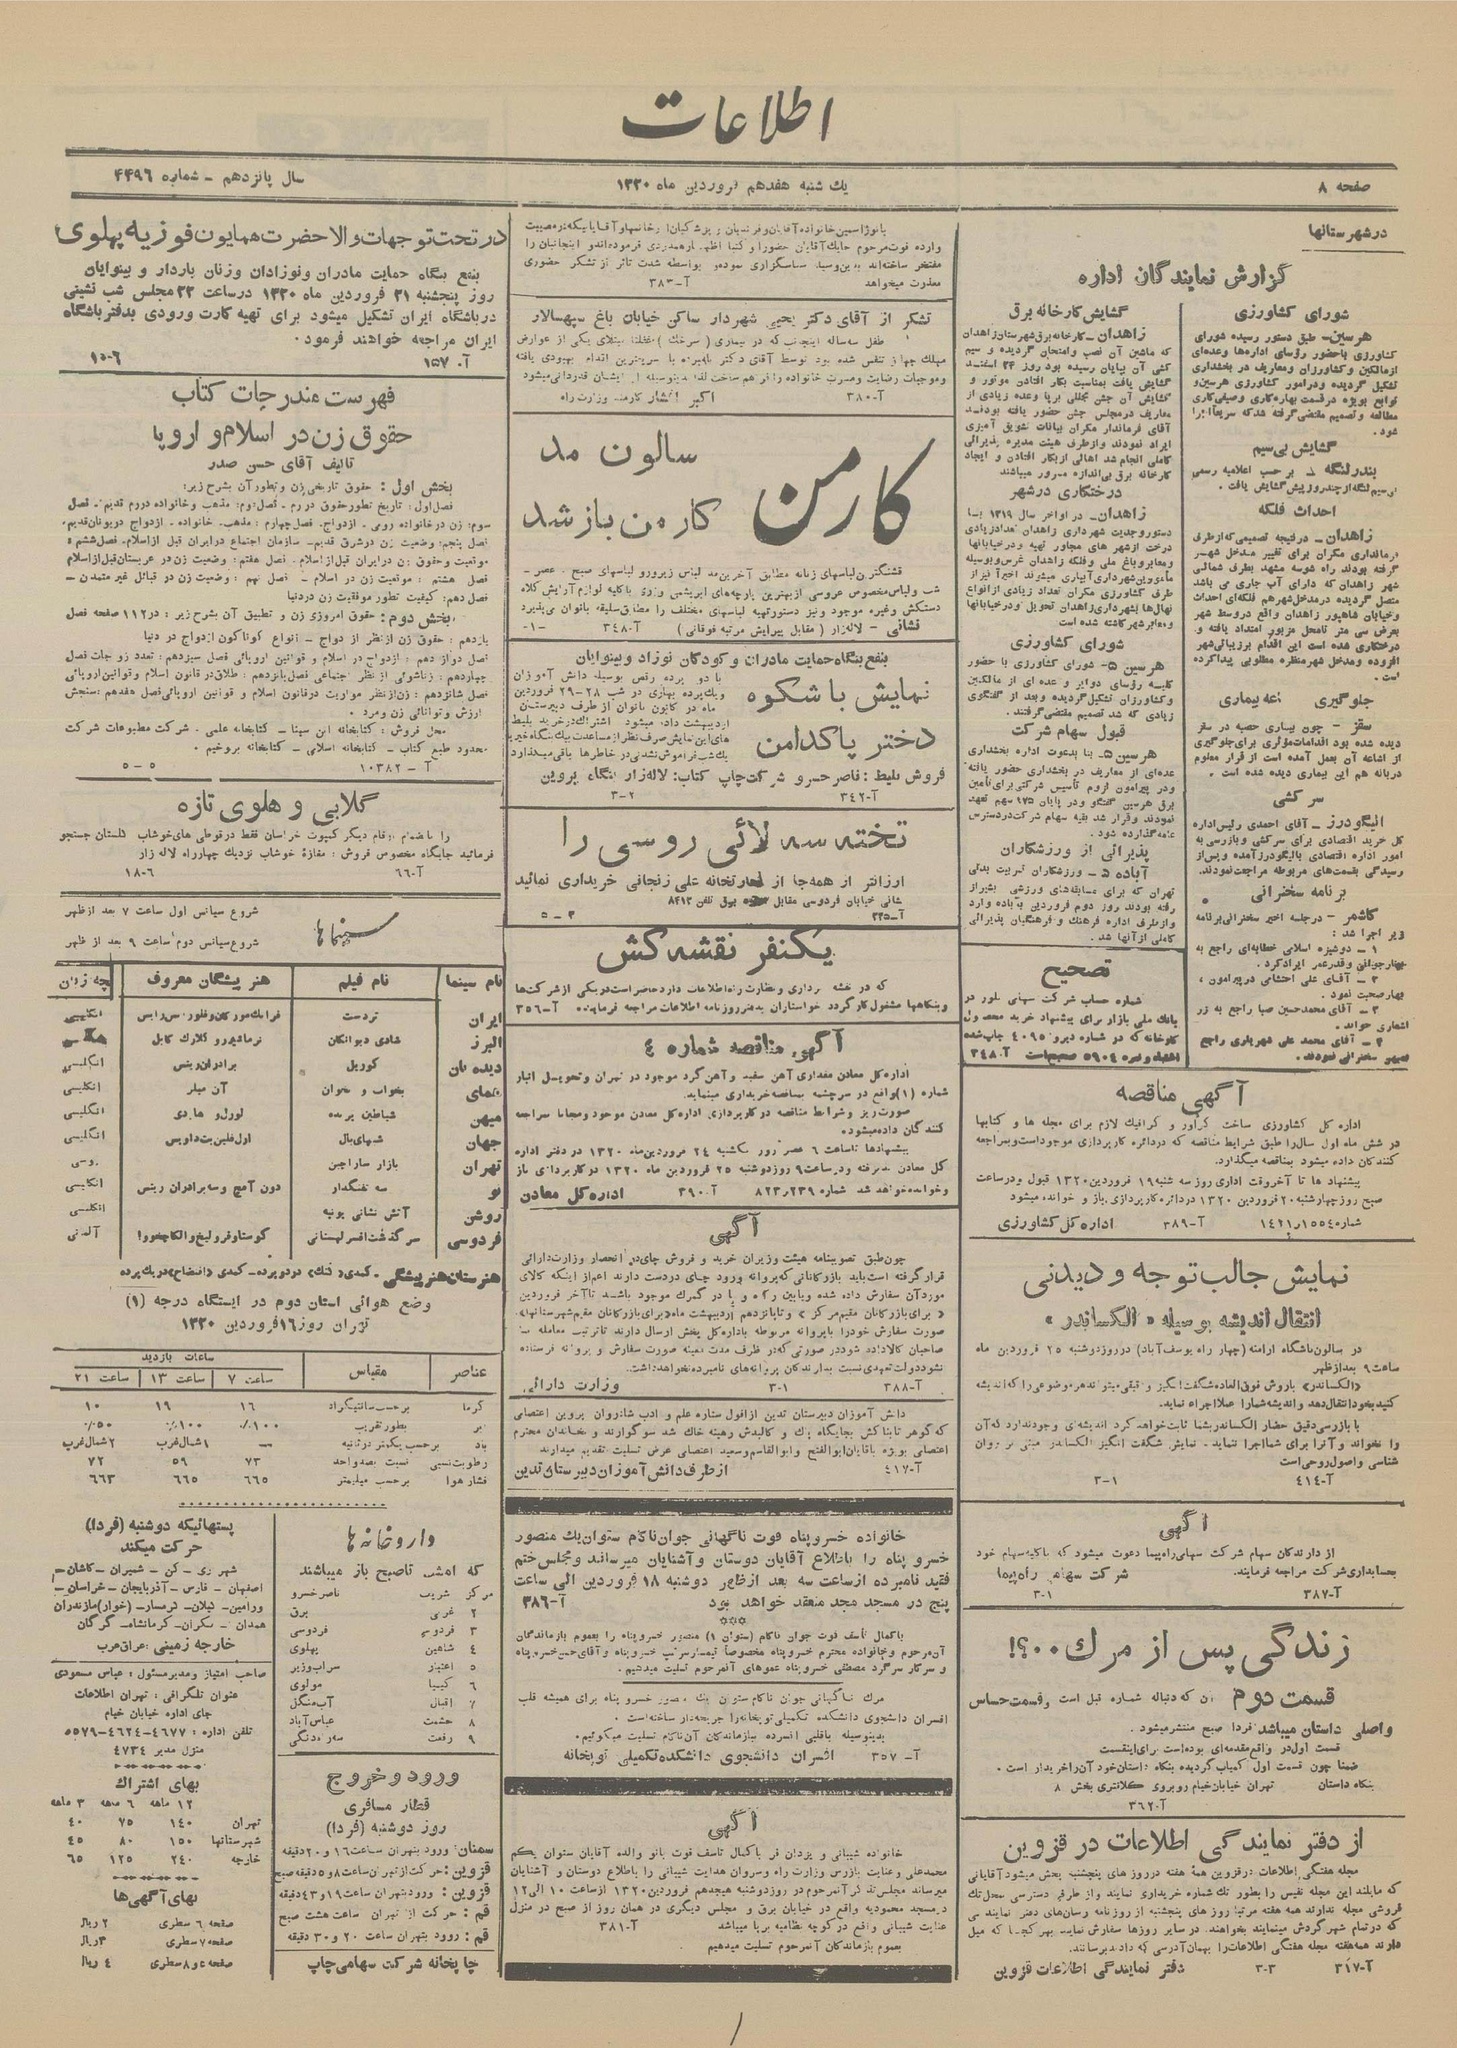 اطلاعات
صفحه ۸
یك شنبه هفدهم فروردین ماه ۱۳۲۰
سال پانزدهم - شماره ۴۴۹۶
در شهرستانها
گزارش نمایندگان اداره
شورای کشاورزی
هرسین- طبق دستور رسیده شورای
کشاورزی باحضور رؤسای اداره‌ها وعده‌ای
ازمالکین وکشاورزان ومعارف در بخشداری
تشکیل گردیده ودرامور کشاورزی هرسین و
توابع بویژه درقسمت بهاره‌کاری وصیفی‌کاری
مطالعه وتصمیم مقتضی گرفته شدکه سریعاً اجرا
شود.
گشایش بی‌سیم
بندرلنگه
بر حسب اعلامیه رسمی
بی‌سیم لنگه از چندروز پیش گشایش یافت.
احداث فلکه
زاهدان- درنتیجه تصمیمی که ازطرف
فرمانداری مکران برای تغییر مدخل شهر
گرفته بودند راه شوسه مشهد بطرف شمالی
شهر زاهدان که دارای آب جاری می باشد
متصل گردیده درمدخل شهرهم فلکه‌ای احداث
وخیابان شاهپور زاهدان واقع دروسط شهر
بعرض سی متر تامحل مزبور امتداد یافته و
درختکاری شده است این اقدام برزیبائی شهر
افزوده ومدخل شهر منظره مطلوبی پیدا کرده
است.
جلوگیری
بیماری
سقز - چون بیماری حصبه در سقز
دیده شده بود اقدامات مؤثری برای جلوگیری
از اشاعه آن بعمل آمده است از قرار معلوم
درباله هم این بیماری دیده شده است.
سرکشی
الیگودرز- آقای احمدی رئیس اداره
کل خرید اقتصادی برای سرکشی وبازرسی به
امور اداره اقتصادی بالیگودرز آمده وپس از
رسیدگی بقسمت‌های مربوطه مراجعت نمودند.
برنامه سخنرانی
کاشمر - درجلسه اخیر سخنرانی برنامه
زیر اجرا شد:
۱ - دوشیزه اسلامی خطابه‌ای راجع به
بهار جوانی وقدرعمر ایرادکرد.
۲ - آقای علی احتشامی در پیرامون
بهار صحبت نمود.
۳ - آقای محمدحسین صبا راجع به
اشعاری خواند.
۴ - آقای محمد علی شهریاری راجع
سخنرانی نمودند.
گشایش کارخانه برق
زاهدان- کارخانه برق شهرستان زاهدان
که ماشین آن نصب وامتحان گردیده و سیم
کشی آن بپایان رسیده بود روز ۲۴ اسفند
گشایش یافت بمناسبت بکار افتادن موتور و
گشایش آن جشن مجللی برپا وعده زیادی از
معاریف درمجلس جشن حضور یافته بودند
آقای فرماندار مکران بیانات تشویق آمیزی
ایراد نمودند وازطرف هیئت مدیره پذیرائی
کاملی انجام شد اهالی از بکار افتادن و ایجاد
کارخانه برق بی‌اندازه مسرور میباشند
درختکاری در شهر
زاهدان- در اواخر سال ۱۳۱۹ بنا
بدستور وجدیت شهرداری زاهدان تعداد زیادی
درخت از شهر های مجاور تهیه ودرخیابانها
ومعابر وباغ ملی وفلکه زاهدان غرس وبوسیله
مأمورین شهرداری آبیاری میشوند اخیراً نیز از
طرف کشاورزی مکران تعداد زیادی از انواع
نهال‌ها بشهرداری زاهدان تحویل ودرخیابانها
ومعابر شهر کاشته شده است
شورای کشاورزی
هرسین ۵- شورای کشاورزی با حضور
کلیه رؤسای دوایر و عده ای از مالکین
وکشاورزان تشکیل گردیده وبعد از گفتگوی
زیادی که شد تصمیم مقتضی گرفتند.
قبول سهام شرکت
هرسین ۵- بنا بدعوت اداره بخشداری
عده‌ای از معاریف در بخشداری حضور یافته
ودر پیرامون لزوم تأسیس شرکتی برای تأمین
برق هرسین گفتگو ودر پایان ۱۷۵ سهم تعهد
نمودند وقرار شد بقیه سهام شرکت دردسترس
عامه گذارده شود.
پذیرائی از ورزشکاران
آباده ۵ - ورزشکاران تربیت بدنی
تهران که برای مسابقه‌های ورزشی بشیراز
رفته بودند روز دوم فروردین بآباده وارد
وازطرف اداره فرهنك و فرهنگیان پذیرائی
کاملی از آنها شد.
تصحیح
شماره حساب شرکت سهامی بلور در
بانك ملی بازار برای پیشنهاد خرید محصول
کارخانه که در شماره دیروز ۴۰۹۵ چاپ شده
اشتباه و نمره ۵۹۰۴ صحیح است آ-۳۴۸
آگهی مناقصه
اداره کل کشاورزی ساخت گراور و گرافیك لازم برای مجله ها و کتابها
در شش ماه اول سال را طبق شرایط مناقصه که دردائره کارپردازی موجود است وبمراجعه
کنندگان داده میشود بمناقصه میگذارد.
پیشنهاد ها تا آخروقت اداری روز سه شنبه ۱۹ فروردین ۱۳۲۰ قبول ودرساعت
صبح روز چهارشنبه ۲۰ فروردین ۱۳۲۰ دردائره کارپردازی باز و خوانده میشود
شماره ۱۵۵۴ر۱۴۲۱ آ-۳۸۹ اداره کل کشاورزی
نمایش جالب توجه و دیدنی
انتقال اندیشه بوسیله «الکساندر»
در سالون باشگاه ارامنه (چهار راه یوسف‌آباد) درروز دوشنبه ۲۵ فروردین ماه
ساعت ۹ بعدازظهر
«الکساندر» باروش فوق‌العاده شگفت‌انگیز و دقیقی میتواند هر موضوعی را که اندیشه
کنید بخود انتقال دهد واندیشه شما را عملاً اجرا نماید.
با بازرسی دقیق حضار الکساندر بشما ثابت خواهد کرد اندیشه‌ای وجود ندارد که آن
را نخواند و آنرا برای شما اجرا ننماید - نمایش شگفت انگیز الکساندر مبنی بر روان
شناسی واصول روحی است
آ-۴۱۴ ۳-۱
آگهی
از دارندگان سهام شرکت سهامی راه‌پیما دعوت میشود که باکلیه سهام خود
بحسابداری شرکت مراجعه فرمایند. شرکت سهامی راه‌پیما
آ-۳۸۷ ۳-۱
زندگی پس از مرك ۰۰؟!
قسمت دوم
که دنباله شماره قبل است وقسمت حساس
واصلی داستان میباشد فردا صبح منتشر میشود.
قسمت اول در واقع مقدمه‌ای بوده است برای اینقسمت
ضمناً چون قسمت اول کمیاب گردیده بنگاه داستان خود آن‌را خریدار است.
بنگاه داستان تهران خیابان خیام روبروی کلانتری بخش ۸
آ-۳۶۲
از دفتر نمایندگی اطلاعات در قزوین
مجله هفتگی اطلاعات درقزوین همه هفته درروز های پنجشنبه پخش میشود آقایانی
که مایلند این مجله نفیس را بطور تك شماره خریداری نمایند و از طرفی دسترسی بمحل تك
فروشی مجله ندارند همه هفته مرتباً روز های پنجشنبه از روزنامه رسان‌های دفتر نمایندگی
که درتمام شهر گردش مینمایند بخواهند. در سایر روزها سفارش نمایند بهر کجا که میل
دارند همه‌هفته مجله هفتگی اطلاعات را بهمان آدرسی که دادند برسانند.
آ-۳۱۷ ۳-۳ دفتر نمایندگی اطلاعات قزوین
وارده فوت مرحوم
مفتخر ساخته‌اند بدین‌وسیله سپاسگزاری نموده و بواسطه شدت تاثر از تشکر حضوری
معذرت میخواهد آ-۳۸۳
تشکر از آقای دکتر یحیی شهردار ساکن خیابان باغ سپهسالار
آ-۳۸۰ اکبر افشار کارمند وزارت راه
کارمن
سالون مد
کارمن باز شد
قشنگترین لباسهای زنانه مطابق آخرین مد لباس زیر ورو ولباسهای صبح - عصر -
شب ولباس مخصوص عروسی از بهترین پارچه‌های ابریشمی وزری با کلیه لوازم آرایش کلاه
دستکش وغیره موجود ونیز دستورتهیه لباسهای مختلف را مطابق سلیقه بانوان می‌پذیرد
نشانی - لاله‌زار (مقابل پیرایش مرتبه فوقانی) آ-۳۴۸
بنفع بنگاه حمایت مادران و کودکان نوزاد و بینوایان
نمایش با شکوه
دختر پاکدامن
با دو پرده رقص بوسیله دانش آموزان
ویك پرده بهاری در شب ۲۸-۲۹ فروردین
ماه در کانون بانوان از طرف دبیرستان
اردیبهشت داده میشود. اشتراك در خرید بلیط
های این نمایش صرف نظر از مساعدت بیك بنگاه خیریه
یك شب فراموش نشدنی در خاطرها باقی میگذارد
فروش بلیط: ناصر خسرو شرکت چاپ کتاب: لاله‌زار بنگاه پروین
آ-۳۴۲ ۳-۲
تخته سه لائی روسی را
ارزانتر از همه جا از تجارتخانه علی زنجانی خریداری نمائید
نشانی خیابان فردوسی مقابل
برق تلفن ۸۴۱۲
آ-۳۳۵
یکنفر نقشه کش
وبنگاهها مشغول کار گردد خواستاران بدفتر روزنامه اطلاعات مراجعه فرمایند. آ-۳۵۶
آگهی مناقصه شماره ۴
اداره کل معادن مقداری آهن سفید و آهن گرد موجود در تهران وتحویل انبار
شماره (۱) واقع در سرچشمه بمناقصه خریداری مینماید.
صورت ریز و شرایط مناقصه در کارپردازی اداره کل معادن موجود ومجاناً بمراجعه
کنندگان داده میشود.
پیشنهادها تا ساعت ۶ عصر روز یکشنبه ۲۴ فروردین ماه ۱۳۲۰ در دفتر اداره
کل معادن پذیرفته ودرساعت ۹ روز دوشنبه ۲۵ فروردین ماه ۱۳۲۰ در کارپردازی باز
وخوانده خواهد شد شماره ۸۲۳ر۲۳۹ آ-۳۹۰ اداره کل معادن
آگهی
چون طبق تصویبنامه هیئت وزیران خرید و فروش چای در انحصار وزارت دارائی
قرار گرفته است باید بازرگانانی که پروانه ورود چای دردست دارند اعم از اینکه کالای
مورد آن سفارش داده شده ویابین راه و یا در گمرك موجود باشد تا آخر فروردین
«برای بازرگانان مقیم مرکز» و تا پانزدهم اردیبهشت ماه «برای بازرگانان مقیم شهرستانها»
صورت سفارش خود را با پروانه مربوطه باداره کل پخش ارسال دارند تا ترتیب معامله
نشود دولت تعهدی نسبت بدارندگان پروانه‌های نامبرده نخواهد داشت.
آ-۳۸۸ ۳-۱ وزارت دارائی
دانش آموزان دبیرستان تدین از افول ستاره علم و ادب شادروان پروین اعتصامی
که گوهر تابناکش بجایگاه پاك و کالبدش رهینه خاك شد سوگوارند و بخاندان محترم
اعتصامی بویژه بآقایان ابوالفتح وابوالقاسم وسعید اعتصامی عرض تسلیت تقدیم میدارند
آ-۴۱۷ از طرف دانش آموزان دبیرستان تدین
خانواده خسروپناه فوت ناگهانی جوان ناکام ستوان یك منصور
خسرو پناه را باطلاع آقایان دوستان و آشنایان میرساند ومجلس ختم
فقید نامبرده از ساعت سه بعد از ظهر دوشنبه ۱۸ فروردین الی ساعت
پنج در مسجد مجد منعقد خواهد بود آ-۳۸۶
باکمال تأسف فوت جوان ناکام (ستوان ۱) منصور خسروپناه را بعموم بازماندگان
آن مرحوم وخانواده محترم خسروپناه مخصوصاً تیمسار سرتیپ خسروپناه و آقای حسن خسروپناه
و سرکار سرگرد مصطفی خسروپناه عموهای آنمرحوم تسلیت میدهیم.
مرك ناگهانی جوان ناکام ستوان یك منصور خسرو پناه برای همیشه قلب
افسران دانشجوی دانشکده تکمیلی توپخانه را جریحه‌دار ساخته است.
بدینوسیله باقلبی افسرده ببازماندگان آن ناکام تسلیت میگوئیم.
آ-۳۵۷ افسران دانشجوی دانشکده تکمیلی توپخانه
آگهی
محمدعلی وعنایت بازرس وزارت راه وسروان هدایت شیبانی را باطلاع دوستان و آشنایان
میرساند مجلس تذکر آنمرحوم در روز دوشنبه هیجدهم فروردین ۱۳۲۰ از ساعت ۱۰ الی ۱۲
در مسجد محمودیه واقع در خیابان برق و مجلس دیگری در همان روز از صبح در منزل
عنایت شیبانی واقع در کوچه نظامیه برپا میباشد آ-۳۸۱
بعموم بازماندگان آنمرحوم تسلیت میدهیم.
در تحت توجهات والاحضرت همایون فوزیه پهلوی
بنفع بنگاه حمایت مادران ونوزادان وزنان باردار و بینوایان
روز پنجشنبه ۲۱ فروردین ماه ۱۳۲۰ درساعت ۲۲ مجلس شب نشینی
در باشگاه ایران تشکیل میشود برای تهیه کارت ورودی بدفتر باشگاه
ایران مراجعه خواهند فرمود.
آ-۱۵۷ ۱۰-۶
فهرست مندرجات کتاب
حقوق زن در اسلام و اروپا
تالیف آقای حسن صدر
بخش اول: حقوق تاریخی زن وتطور آن بشرح زیر:
فصل اول: تاریخ تطور حقوق در رم - فصل دوم: مذهب وخانواده در رم قدیم - فصل
سوم: زن در خانواده رومی. ازدواج. فصل چهارم: مذهب. خانواده - ازدواج در یونان قدیم
فصل پنجم: وضعیت زن در شرق قدیم- سازمان اجتماع در ایران قبل از اسلام. فصل ششم:
موقعیت وحقوق زن در ایران قبل از اسلام. فصل هفتم: وضعیت زن در عربستان قبل از اسلام
فصل هشتم: موقعیت زن در اسلام - فصل نهم: وضعیت زن در قبائل غیر متمدن -
فصل دهم: کیفیت تطور موفقیت زن در دنیا
بخش دوم: حقوق امروزی زن و تطبیق آن بشرح زیر: در ۱۱۲ صفحه فصل
یازدهم: حقوق زن از نظر ازدواج - انواع گوناگون ازدواج در دنیا
فصل دوازدهم: ازدواج در اسلام و قوانین اروپائی فصل سیزدهم: تعدد زوجات فصل
چهاردهم: زناشوئی از نظر اجتماعی فصل پانزدهم: طلاق در قانون اسلام و قوانین اروپائی
فصل شانزدهم: زن از نظر مواریث در قانون اسلام و قوانین اروپائی فصل هفدهم: سنجش
ارزش و توانائی زن و مرد.
محل فروش: کتابخانه ابن سینا - کتابخانه علمی. شرکت مطبوعات شرکت
محدود طبع کتاب - کتابخانه اسلامی - کتابخانه بروخیم.
آ - ۱۰۳۸۲ ۵-۵
گلابی و هلوی تازه
را باضمام ارقام دیگر کمپوت خراسان فقط در قوطی های خوشاب گلستان جستجو
فرمائید جایگاه مخصوص فروش: مغازه خوشاب نزدیك چهارراه لاله زار
آ-۶۶ ۱۸-۶
سینماها
شروع سیانس اول ساعت ۷ بعد از ظهر
شروع سیانس دوم ساعت ۹ بعد از ظهر
نام سینما نام فیلم هنر پیشگان معروف بچه زبان
ایران تردست فرانك مورگان وفلورنس رایس انگلیسی
البرز شادی دیوانگان نرماشیرر و کلارك گابل
دیده‌بان
برادران ریتس انگلیسی
تماشای بخواب و بخوان آن میلر انگلیسی
میهن شیاطین پرنده لورل و هاردی انگلیسی
جهان شبهای بال اول فلین بت داویس انگلیسی
تهران بازار ساراجین روسی
نو سه تفنگدار دون آمچ وسه برادران ریتس انگلیسی
روشن آتش نشانی بونبه انگلیسی
فردوسی سرگذشت افسر لهستانی
آلمانی
هنرستان هنرپیشگی - کمدی
دردو پرده - کمدی (افتضاح) دریك پرده
وضع هوائی استان دوم در ایستگاه درجه (۱)
تهران روز ۱۶ فروردین ۱۳۲۰
عناصر مقیاس ساعات بازدید
ساعت ۷ ساعت ۱۳ ساعت ۲۱
گرما برحسب سانتیگراد ۱۶ ۱۹ ۱۰
ابر بطور تقریب ٪۱۰۰ ٪۱۰۰ ٪۵۰
باد برحسب یکمتر در ثانیه — ۱ شمال غرب ۲ شمال غرب
رطوبت نسبی نسبت بصد واحد ۷۳ ۵۹ ۷۲
فشار هوا برحسب میلیمتر ۶۶۵ ۶۶۵ ۶۶۳
داروخانه ها
که امشب تا صبح باز میباشند
مرکز شریف ناصر خسرو
۲ غربی برق
۳ فردوسی فردوسی
۴ شاهین پهلوی
۵ اعتبار سراب‌وزیر
۶ کیمیا مولوی
۷ اقبال آب‌منگل
۸ حشمت عباس‌آباد
۹ رفعت
ورود و خروج
قطار مسافری
روز دوشنبه (فردا)
سمنان: ورود بتهران ساعت ۱۶ و ۲۰ دقیقه
قزوین: حرکت از تهران ساعت ۸ و ۵ دقیقه صبح
قزوین: ورود بتهران ساعت ۱۹ و ۴۳ دقیقه
قم: حرکت از تهران ساعت هشت صبح
قم: ورود بتهران ساعت ۲۰ و ۳۰ دقیقه
چاپخانه شرکت سهامی چاپ
پستهائیکه دوشنبه (فردا)
حرکت میکند
شهر ری - کن - شمیران - کاشان -
اصفهان - فارس - آذربایجان - خراسان -
ورامین - گیلان - گرمسار - (خوار) مازندران
همدان - مکران - کرمانشاه - گرگان
خارجه زمینی: عراق عرب
صاحب امتیاز ومدیر مسئول: عباس مسعودی
عنوان تلگرافی: تهران اطلاعات
جای اداره خیابان خیام
تلفن اداره: ۴۶۷۷-۴۶۲۴-۵۵۷۹
منزل مدیر ۴۷۳۴
بهای اشتراك
۱۲ ماهه ۶ ماهه ۳ ماهه
تهران ۱۴۰ ۷۵ ۴۰
شهرستانها ۱۵۰ ۸۰ ۴۵
خارجه ۲۴۰ ۱۲۵ ۶۵
بهای آگهی‌ها
صفحه ۶ سطری ۲ ریال
صفحه ۷ سطری ۳ ریال
صفحه ۵ و ۸ سطری ۴ ریال